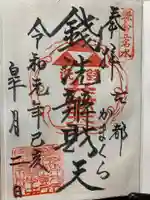 奉拝
古都
かまくら
銭洗辨財天
令和元年己亥
皐月二日